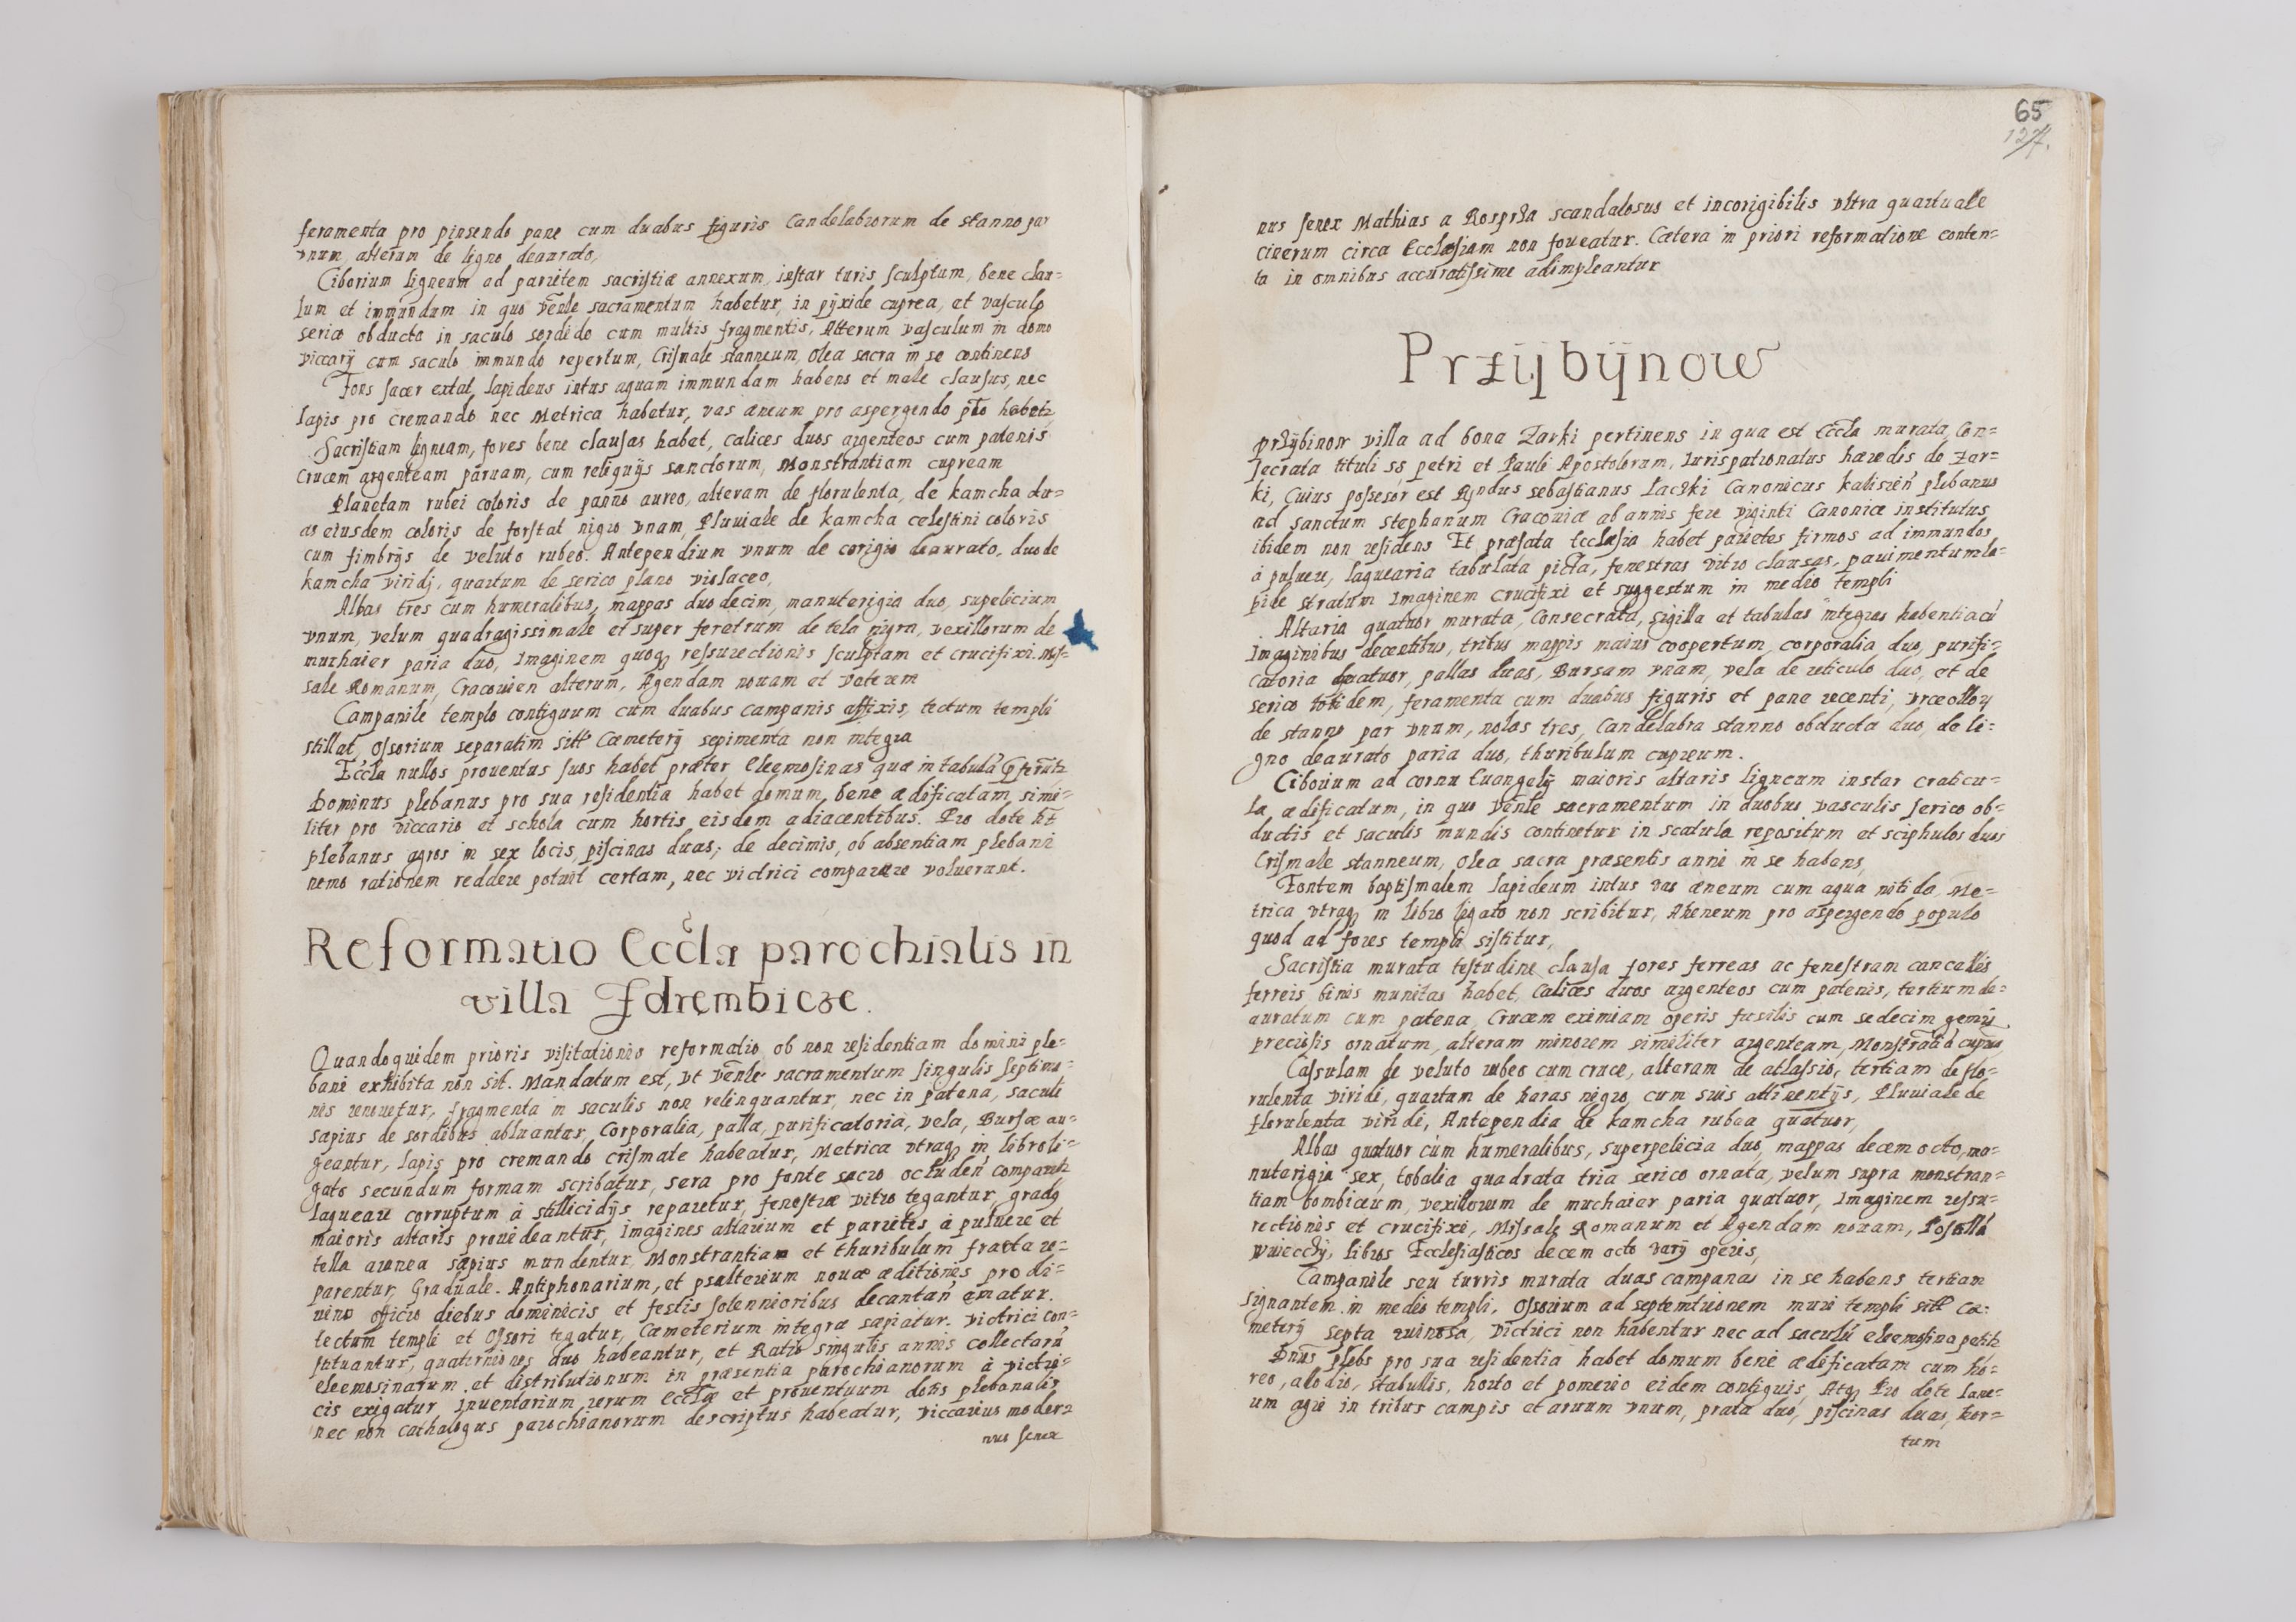 feramenta pro pinsendo pane cum duabus figuris Candelabrorum de stanno par
vnum, alterum de ligno deaurato,
Ciborium ligneum ad parietem sacristiæ annexum, instar turis sculptum, bene clau-
sum et immundum in quo Vēnle sacramentum habetur, in pyxide cuprea, et vasculo
serico obducta in saculo sordido cum multis fragmentis, Alterum vasculum in domo
viccarij cum saculo immundo repertum, Crismale stanneum, Olea sacra in se continens
Fons sacer extat, lapideus intus aquam immundam habens et male clausus, nec
lapis pro cremando nec Metrica habetur, vas æneum pro aspergendo pło habetr
Sacristiam ligneam, fores bene clausas habet, calices duos argenteos cum patenis
Crucem argenteam paruam, cum reliquijs sanctorum, Monstrantiam cupream
Planetam rubei coloris de panno aureo, alteram de florulenta, de kamcha du-
as eiusdem coloris de forstat nigro vnam, Pluuiale de kamcha celestini coloris
cum fimbrijs de veluto rubeo. Antependium vnum de corigio deaurato, duo de
kamcha viridj, quartum de serico plano violaceo,
Albas tres cum humeralibus, mappas duodecim, manuterigia duo, supelicium
vnum, velum quadragissimale et super feretrum de tela nigra, vexillorum de
muchaier paria duo, Imaginem quoq ressurectionis sculptam et crucifixi. Mis-
sale Romanum, Cracouien alterum, Agendam nouam et veterem
Campanile templo contiguum cum duabus campanis affixis, tectum templi
stillat, Ossorium separatim sitū Cæmeterij sepimenta non integra
Eccla nullos prouentus suos habet præter Eleemosinas quæ in tabulā pferūtr
Dominus plebanus pro sua residentia habet domum, bene ædificatam, simi-
liter pro viccario et schola cum hortis eisdem adiacentibus. Pro dote ht
plebanus agros in sex locis, piscinas duas; de decimis, ob absentiam plebani
nemo rationem reddere potuit certam, nec victrici comparere voluerunt.
Reformatio Ecclæ parochialis in
villa Zdrembicze.
Quandoquidem prioris visitationis reformatio ob non residentiam domini ple-
bani exhibita non sit. Mandatum est, vt Vēnle sacramentum singulis septima-
nis renouetur, fragmenta in saculis non relinquantur, nec in patena, saculi
sæpius de sordibus abluantur, Corporalia, palla, purificatoria, vela, Bursæ au-
geantur, lapis pro cremando crismate habeatur, Metrica vtraq in libro li-
gato secundum formam scribatur, sera pro fonte sacro ocluden comparetr
laqueare corruptum à stillicidijs reparetur, fenestræ vitro tegantur, gradq
maioris altaris prouideantur, imagines altarium et parietes à puluere et
tella aranea sæpius mundentur. Monstrantiam et thuribulum fracta re-
parentur, Graduale. Antiphonarium, et psalterium nouæ æditionis pro di-
uino officio diebus dominicis et festis solennioribus decantan emātur.
tectum templi et Ossori tegatur, Cæmeterium integræ sæpiatur. Victrici con-
stituantur, quaterniones duo habeantur, et Ratio singulis annis collectarū
eleemosinarum et distributionum in præsentia parochianorum à victri-
cis exigatur, Inuentarium rerum Ecclæ et prouentuum dotis plebanalis
nec non cathalogus parochianorum descriptus habeatur, Viccarius moder-
nus senex
65
127.
nus senex Mathias a Rosprza scandalosus et incorigibilis vltra quartuale
cinerum circa Ecclæsiam non foueatur. Cætera in priori reformatione conten-
ta in omnibus accuratissime adimpleantur
Przÿbÿnow
Przÿbinow villa ad bona Zarki pertinens in qua est Eccla murata, Con-
secrata tituli ss petri et Pauli Apostolorum, Iurispatronatus hæredis de Zar-
ki, Cuius possesor est Rndus sebastianus Laczki Canonicus kalisień plebanus
ad sanctum Stephanum Cracouiæ ab annis fere viginti Canonicæ institutus
ibidem non residens Et præfata Ecclæsia habet parietes firmos ad immundos
à puluere, laquearia tabulata picta, fenestras vitro clausas, pauimentum la-
pide stratum Imaginem crucifixi et suggestum in medio templi
Altaria quatuor murata, Consecrata, sigilla et tabulas integras habentia cū
Imaginibus decentibus, tribus mappis maius coopertum, corporalia duo, purifi-
catoria quatuor, pallas duas, Bursam vnam, vela de reticulo duo, et de
serico totidem, feramenta cum duabus figuris et pane recenti, vrceolloꝝ
de stanno par vnum, nolas tres, Candelabra stanno obducta duo, de li-
gno deaurato paria duo, thuribulum cupreum.
Ciborium ad cornu Euangelij maioris altaris ligneum instar craticu-
la, ædificatum, in quo Vēnle sacramentum in duobus vasculis serico ob-
ductis et saculis mundis continetur in scatula repositum et sciphulos duos
Crismale stanneum, Olea sacra præsentis anni in se habens,
Fontem baptismalem lapideum intus vas æneum cum aqua nitida. Me-
trica vtraq in libro ligato non scribitur, Aheneum pro aspergendo populo
quod ad fores templi sistitur,
Sacristia murata testudine clausa fores ferreas ac fenestram cancellis
ferreis binis munitas habet, Calices duos argenteos cum patenis, tertium de-
auratum cum patena, Crucem eximiam operis fusilis cum sedecim gemis
preciosis ornatum, alteram minorem similiter argenteam, Monstratiā cuprea
Casulam de veluto rubeo cum cruce, alteram de atlassio, tertiam de flo-
rulenta viridi, quartam de haras nigro, cum suis attinentijs, Pluuiale de
florulenta viridi, Antependia de kamcha rubea quatuor,
Albas quatuor cum humeralibus, superpelicia duo, mappas decem octo, ma-
nutarigia sex, tobalia quadrata tria serico ornata, velum supra monstran-
tiam bombiceum, vexillorum de muchaier paria quatuor, Imaginem ressu-
rectionis et crucifixi, Missale Romanum et Agendam nouam, Postillā
Wuieczy, libros Ecclesiasticos decem octo varij operis,
Campanile seu turris murata duas campanas in se habens tertiam
signantem in medio templi, Ossorium ad septemtrionem muri templi sitū Cæ-
meterij septa ruinosa, Victrici non habentur nec ad saculū eleemosina petitr
Dnus plebs pro sua residentia habet domum bene ædificatam cum ho-
reo, alodio, stabullis, horto et pomerio eidem contiguis, Atq Pro dote lane-
um agri in tribus campis et aruum vnum, prata duo, piscinas duas, hor-
tum